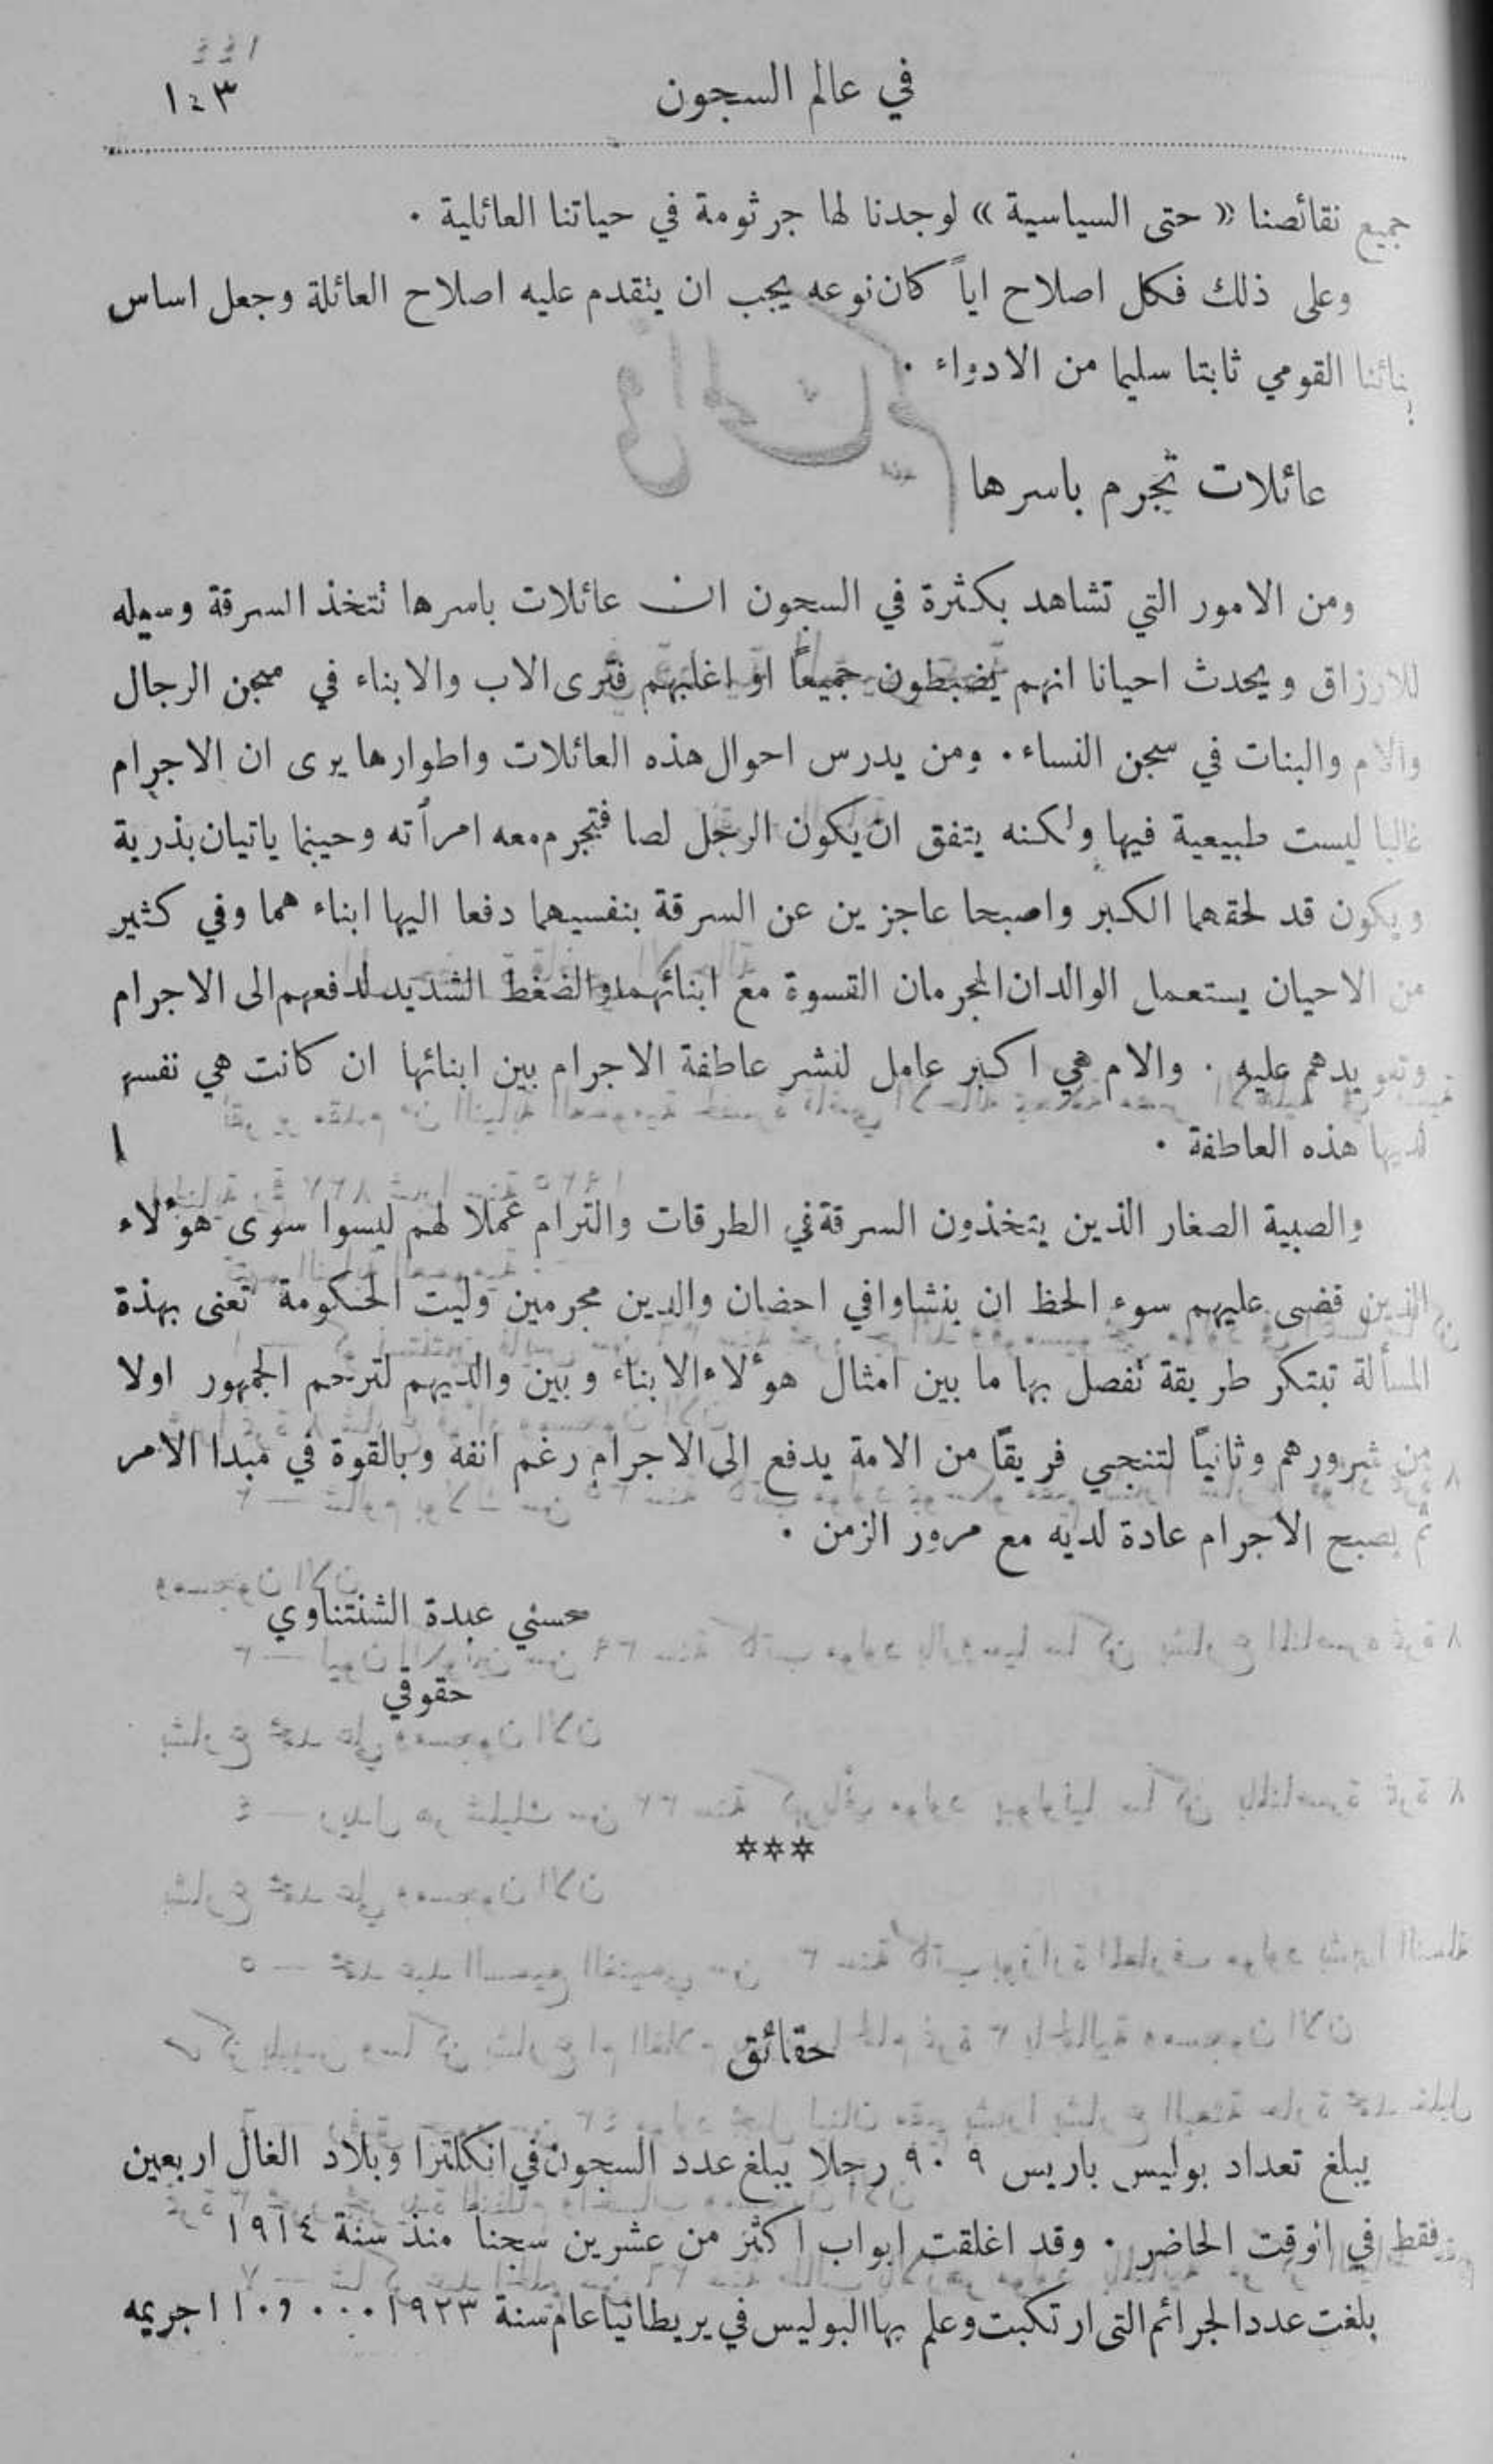 في عالم السجون
١٤٣
جميع نقائصنا « حتى السياسية » لوجدنا لها جرثومة في حياتنا العائلية .
وعلى ذلك فكل اصلاح اياً كان نوعه يجب ان يتقدم عليه اصلاح العائلة وجعل اساس
بنائنا القومي ثابتا سليما من الادواء .
عائلات تجرم باسرها
ومن الامور التي تشاهد بكثرة في السجون ان عائلات باسرها تتخذ السرقة وسيله
للارزاق ويحدث احيانا انهم يضبطون جميعاً او اغلبهم فترى الاب والابناء في سجن الرجال
والام والبنات في سجن النساء . ومن يدرس احوال هذه العائلات واطوارها يرى ان الاجرام
غالبا ليست طبيعية فيها ولكنه يتفق ان يكون الرجل لصا فتجرم معه امرأته وحينما ياتيان بذرية
ويكون قد لحقهما الكبر واصبحا عاجزين عن السرقة بنفسيهما دفعا اليها ابناء هما وفي كثير
من الاحيان يستعمل الوالدان المجرمان القسوة مع ابنائهما والضغط الشديد لدفعهم الى الاجرام
وتعويدهم عليه . والام هي اكبر عامل لنشر عاطفة الاجرام بين ابنائها ان كانت هي نفسها
لديها هذه العاطفة .
والصبية الصغار الذين يتخذون السرقة في الطرقات والترام عملا لهم ليسوا سوى هؤلاء
الذين قضى عليهم سوء الحظ ان ينشاوا في احضان والدين مجرمين وليت الحكومة تعنى بهذة
المسألة تبتكر طريقة تفصل بها ما بين امثال هؤلاء الابناء وبين والديهم لترحم الجمهور اولا
من شرورهم وثانياً لتنجي فريقاً من الامة يدفع الى الاجرام رغم انفه وبالقوة في مبدا الامر
ثم يصبح الاجرام عادة لديه مع مرور الزمن .
حسني عبدة الشنتناوي
حقوقي
***
حقائق
يبلغ تعداد بوليس باريس ٩٠٩ رجلا يبلغ عدد السجون في انكلترا وبلاد الغال اربعين
فقط في الوقت الحاضر . وقد اغلقت ابواب اكثر من عشرين سجناً منذ سنة ١٩١٤
بلغت عدد الجرائم التى ارتكبت وعلم بها البوليس في بريطانيا عام سنة ١٩٢٣ ١١٠,٠٠٠ جريمه